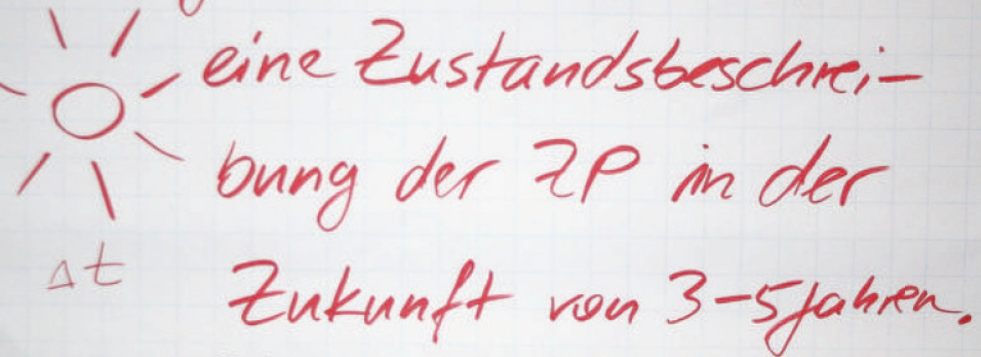 eine Zustandsbeschrei-
bung der ZP in der
Δt
Zukunft von 3-5 Jahren.